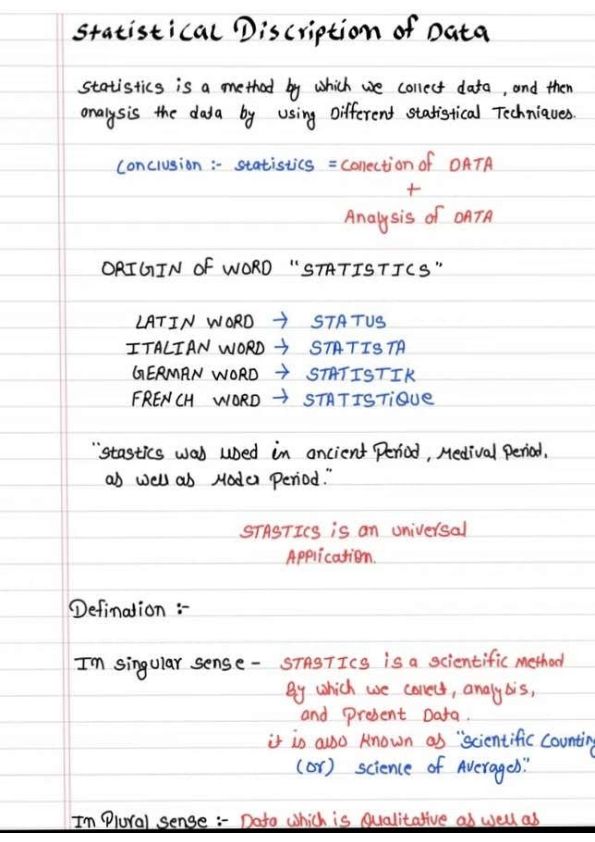 Statistical Discription of Data
Statistics is a method by which we collect data, and then
analysis the data by using Different Statistical Techniques.
Conclusion :- Statistics = Collection of DATA
+
Analysis of DATA
ORIGIN OF WORD "STATISTICS"
LATIN WORD → STATUS
ITALIAN WORD → STATISTA
GERMAN WORD → STATISTIK
FRENCH WORD → STATISTiQUE
"Stastics was used in ancient Period, Medival Period,
as well as Moder Period."
STASTICS is an universal
APPlication.
Defination :-
In singular sense - STASTICS is a scientific Method
By which we collect, analysis,
and Present Data.
it is also known as "Scientific Counting
(or) science of Averages."
In Plural sense :- Data which is Qualitative as well as